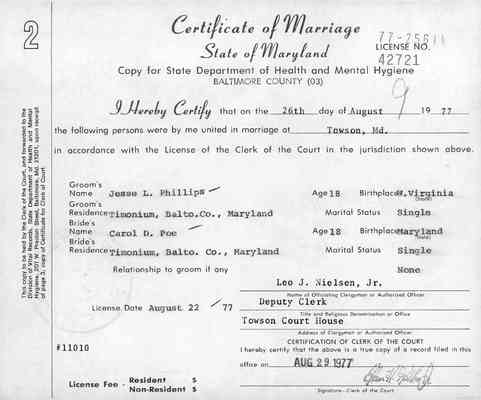 2
Certificate of Marriage
77-25611
State of Maryland
LICENSE NO.
42721
Copy for State Department of Health and Mental Hygiene
BALTIMORE COUNTY (03)
9
I Hereby Certify that on the 26th day of August 19 77
the following persons were by me united in marriage at Towson, Md.
in accordance with the License of the Clerk of the Court in the jurisdiction shown above.
This copy to be held by the Clerk of the Court, and forwarded to the
Division of Vital Records, State Department of Health and Mental
Hygiene, 201 W. Preston Street, Baltimore, Md. 21201, upon receipt
of page 3, copy of Certificate for Clerk of Court
Groom's
Name Jesse L. Phillips Age 18 Birthplace W.Virginia
(State)
Groom's
Residence Timonium, Balto.Co., Maryland Marital Status Single
Bride's
Name Carol D. Poe Age 18 Birthplace Maryland
(State)
Bride's
Residence Timonium, Balto. Co., Maryland Marital Status Single
Relationship to groom if any None
Leo J. Nielsen, Jr.
Name of Officiating Clergyman or Authorized Officer
License Date August 22 / 77 Deputy Clerk
Title and Religious Denomination or Office
Towson Court House
Address of Clergyman or Authorized Officer
#11010
CERTIFICATION OF CLERK OF THE COURT
I hereby certify that the above is a true copy of a record filed in this
office on AUG 29 1977
License Fee - Resident $
Non-Resident $
Signature - Clerk of the Court